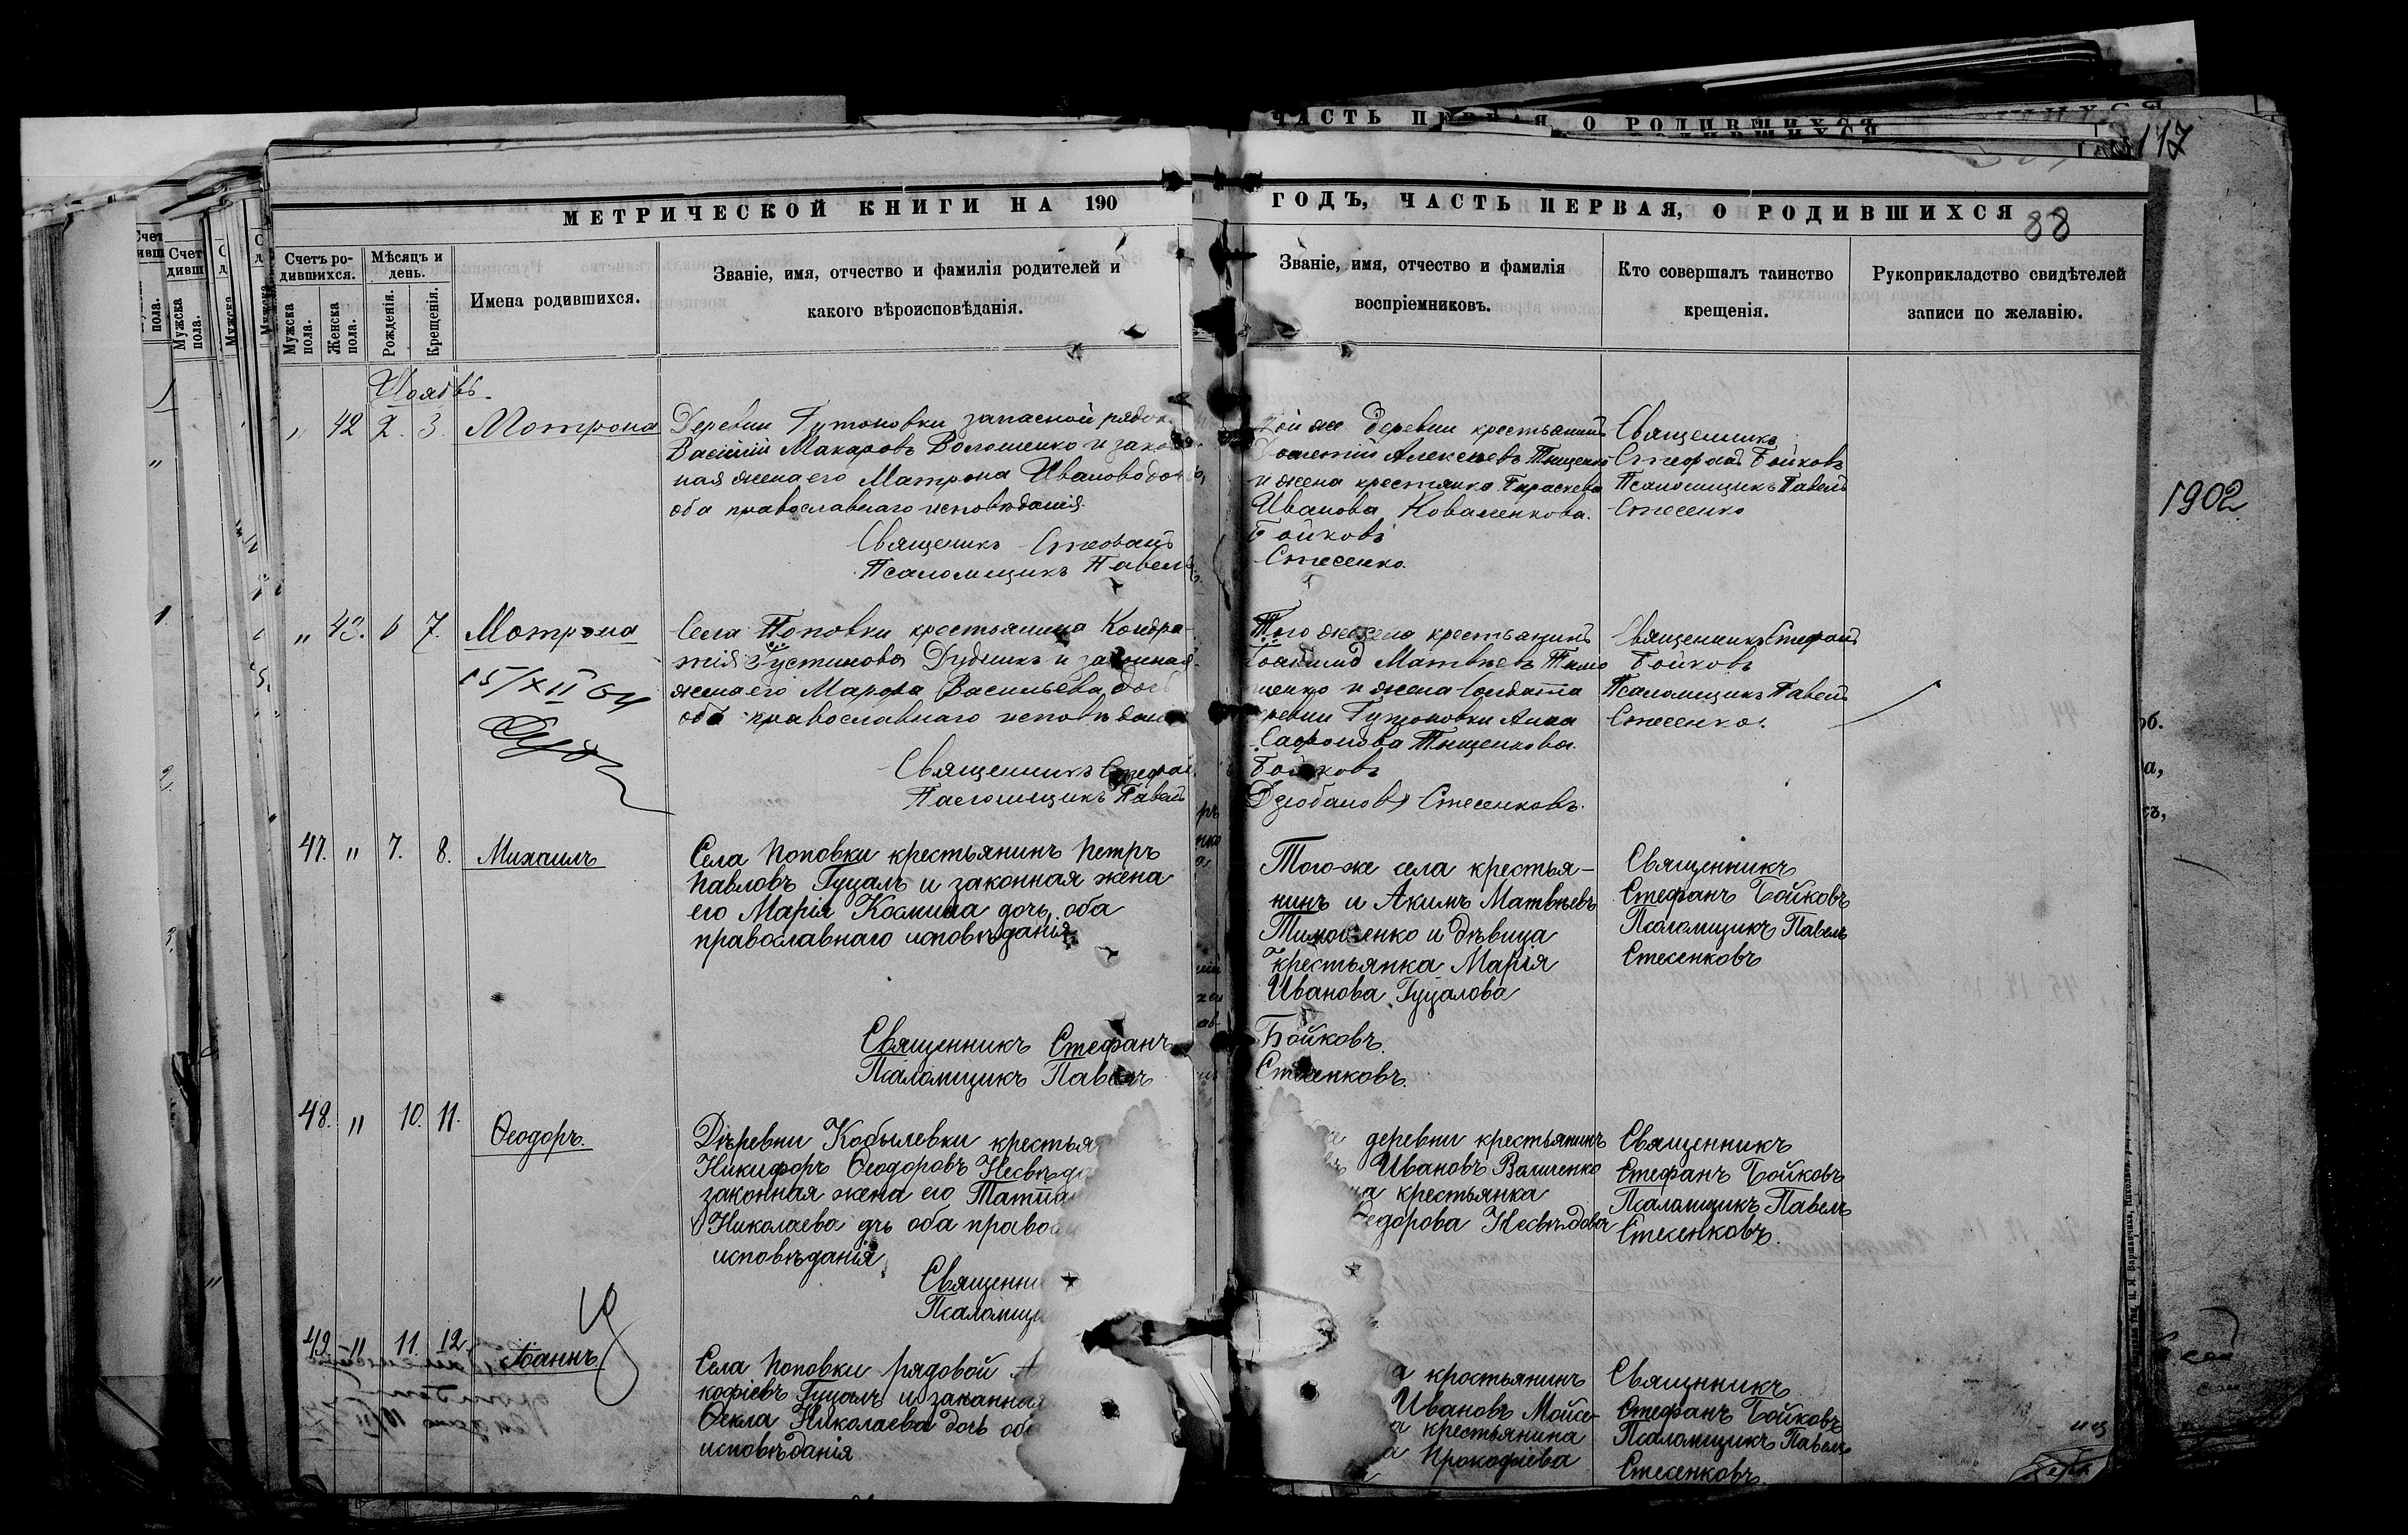 ЧАСТЬ ПЕРВАЯ, О РОДИВШИХСЯ
117
МЕТРИЧЕСКОЙ КНИГИ НА 190 ГОДЪ, ЧАСТЬ ПЕРВАЯ, О РОДИВШИХСЯ
88
Счетъ ро-
дившихся.
Мужска пола.
Женска пола.
Мѣсяцъ и
день.
Рожденія.
Крещенія.
Имена родившихся.
Званіе, имя, отчество и фамилія родителей и
какого вѣроисповѣданія.
Званіе, имя, отчество и фамилія
воспріемниковъ.
Кто совершалъ таинство
крещенія.
Рукоприкладство свидѣтелей
записи по желанію.
1902
Ноябь.
" 42 2. 3. Мотрона
Деревни Гутоновки запасной рядов
Василій Макаровъ Волошенко и зако
ная жена его Матрона Иванова доч
оба православнаго исповѣданія.
Священикъ Стефанъ
Псаломщикъ Павелъ
той же деревни крестьянинъ
Алексѣевъ Тищенко
и жена крестянка Параскева
Иванова Коваленкова.
Бойковъ
Стесенко.
Священникъ
Стефанъ Бойковъ
Псаломщикъ Павелъ
Стесенко
" 43. 6 7. Мотрона
15/XII 64
Села Поповки крестьянина Кондра-
тія Густинова Дудникъ и законная
жена его Марфа Васильева доч
оба православнаго исповѣдан
Священникъ Стефан
Псаломщикъ Павелъ
Того же села крестьянинъ
Іоакимъ Матвѣевъ Тимо
шенко и жена солдата
ревни Гутоновки Анна
Сафонова Тищенкова.
Бойковъ
Стесенковъ.
Священникъ Стефанъ
Бойковъ
Псаломщикъ Павелъ
Стесенко.
47. " 7. 8. Михаилъ
Села Поповки крестьянинъ Петръ
Павловъ Гуцалъ и законная жена
его Марія Космина дочь, оба
православнаго исповѣданія.
Священникъ Стефанъ
Псаломщикъ Павелъ
Того-же села крестья-
нинъ и Акимъ Матвѣевъ
Тимошенко и дѣвица
крестьянка Марія
Иванова Гуцалова
Бойковъ.
Стесенковъ.
Священникъ
Стефанъ Бойковъ
Псаломщикъ Павелъ
Стесенковъ
48. " 10. 11. Ѳеодоръ.
Дѣревни Кобылевки крестья
Никифоръ Ѳеодоровъ Несвѣдо
законная жена его Татіа
Николаева дчь оба право
исповѣданія
Священни
Псаломщ
деревни крестьянинъ
Ивановъ Вашченко
крестьянка
Ѳедорова Несвѣдова
Священникъ
Стефанъ Бойковъ
Псаломщикъ Павелъ
Стесенковъ.
49. " 11. 12. Іоаннъ
Села Поповки рядовой А
кофіевъ Гуцалъ и законная
Ѳекла Николаева дочь оба
исповѣданія
а кростьянинъ
Ивановъ Мойсе-
а крестьянина
а Прокофіева
Священникъ
Стефанъ Бойковъ
Псаломщикъ Павелъ
Стесенковъ